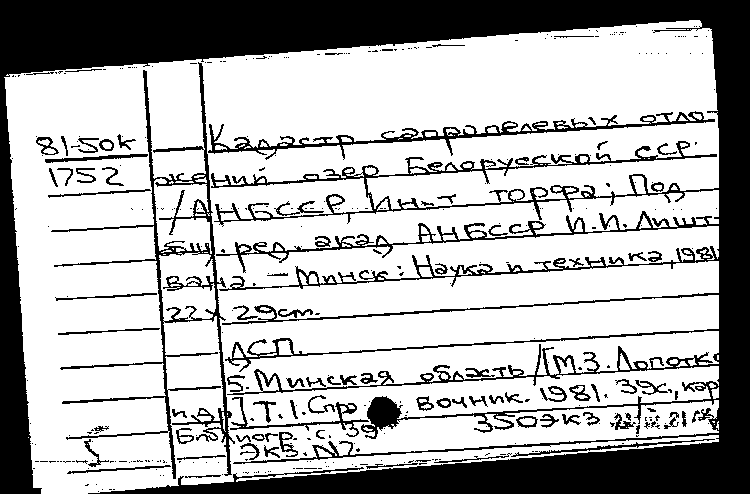 81-50к
1752
Кадастр сапропелевых отло-
жений озер Белорусской сср.
/АНБССР, Ин-т торфа; Под
общ. ред. акад АНБССР И.И. Лишт-
вана. — Минск: Наука и техника, 1981
22 х 29см.
ДСП.
5. Минская область /[М.З. Лопотко
и др]. Т. 1. Спра вочник. 1981. 39с, кар
Библиогр.: с. 39 350экз
Экз. N7.